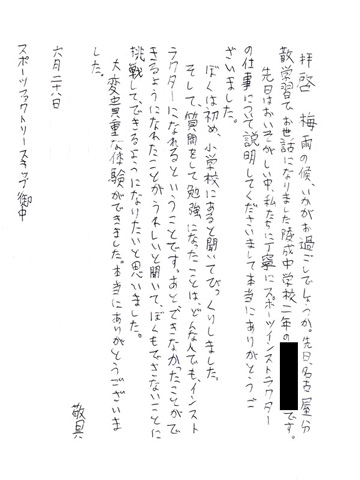 拝啓　梅雨の候、いかがお過ごしでしょうか。先日、名古屋分
散学習でお世話になりました陵成中学校二年の　　　です。
　先日はおいそがしい中、私たちに丁寧にスポーツインストラクター
の仕事について説明してくださいまして本当にありがとうご
ざいました。
　ぼくは初め、小学校にあると聞いてびっくりしました。
　そして、質問をして勉強になったことは、どんな人でも、インスト
ラクターになれるということです。あと、できなかったことがで
きるようになれたことがうれしいと聞いて、ぼくもできないことに
挑戦して、できるようになりたいと思いました。
　大変貴重な体験ができました。本当にありがとうございま
した。
敬具
六月二十八日
スポーツファクトリースタッフ御中